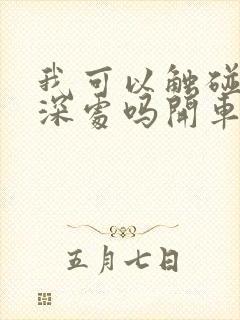 我可以触碰
深处吗開車
五月七日